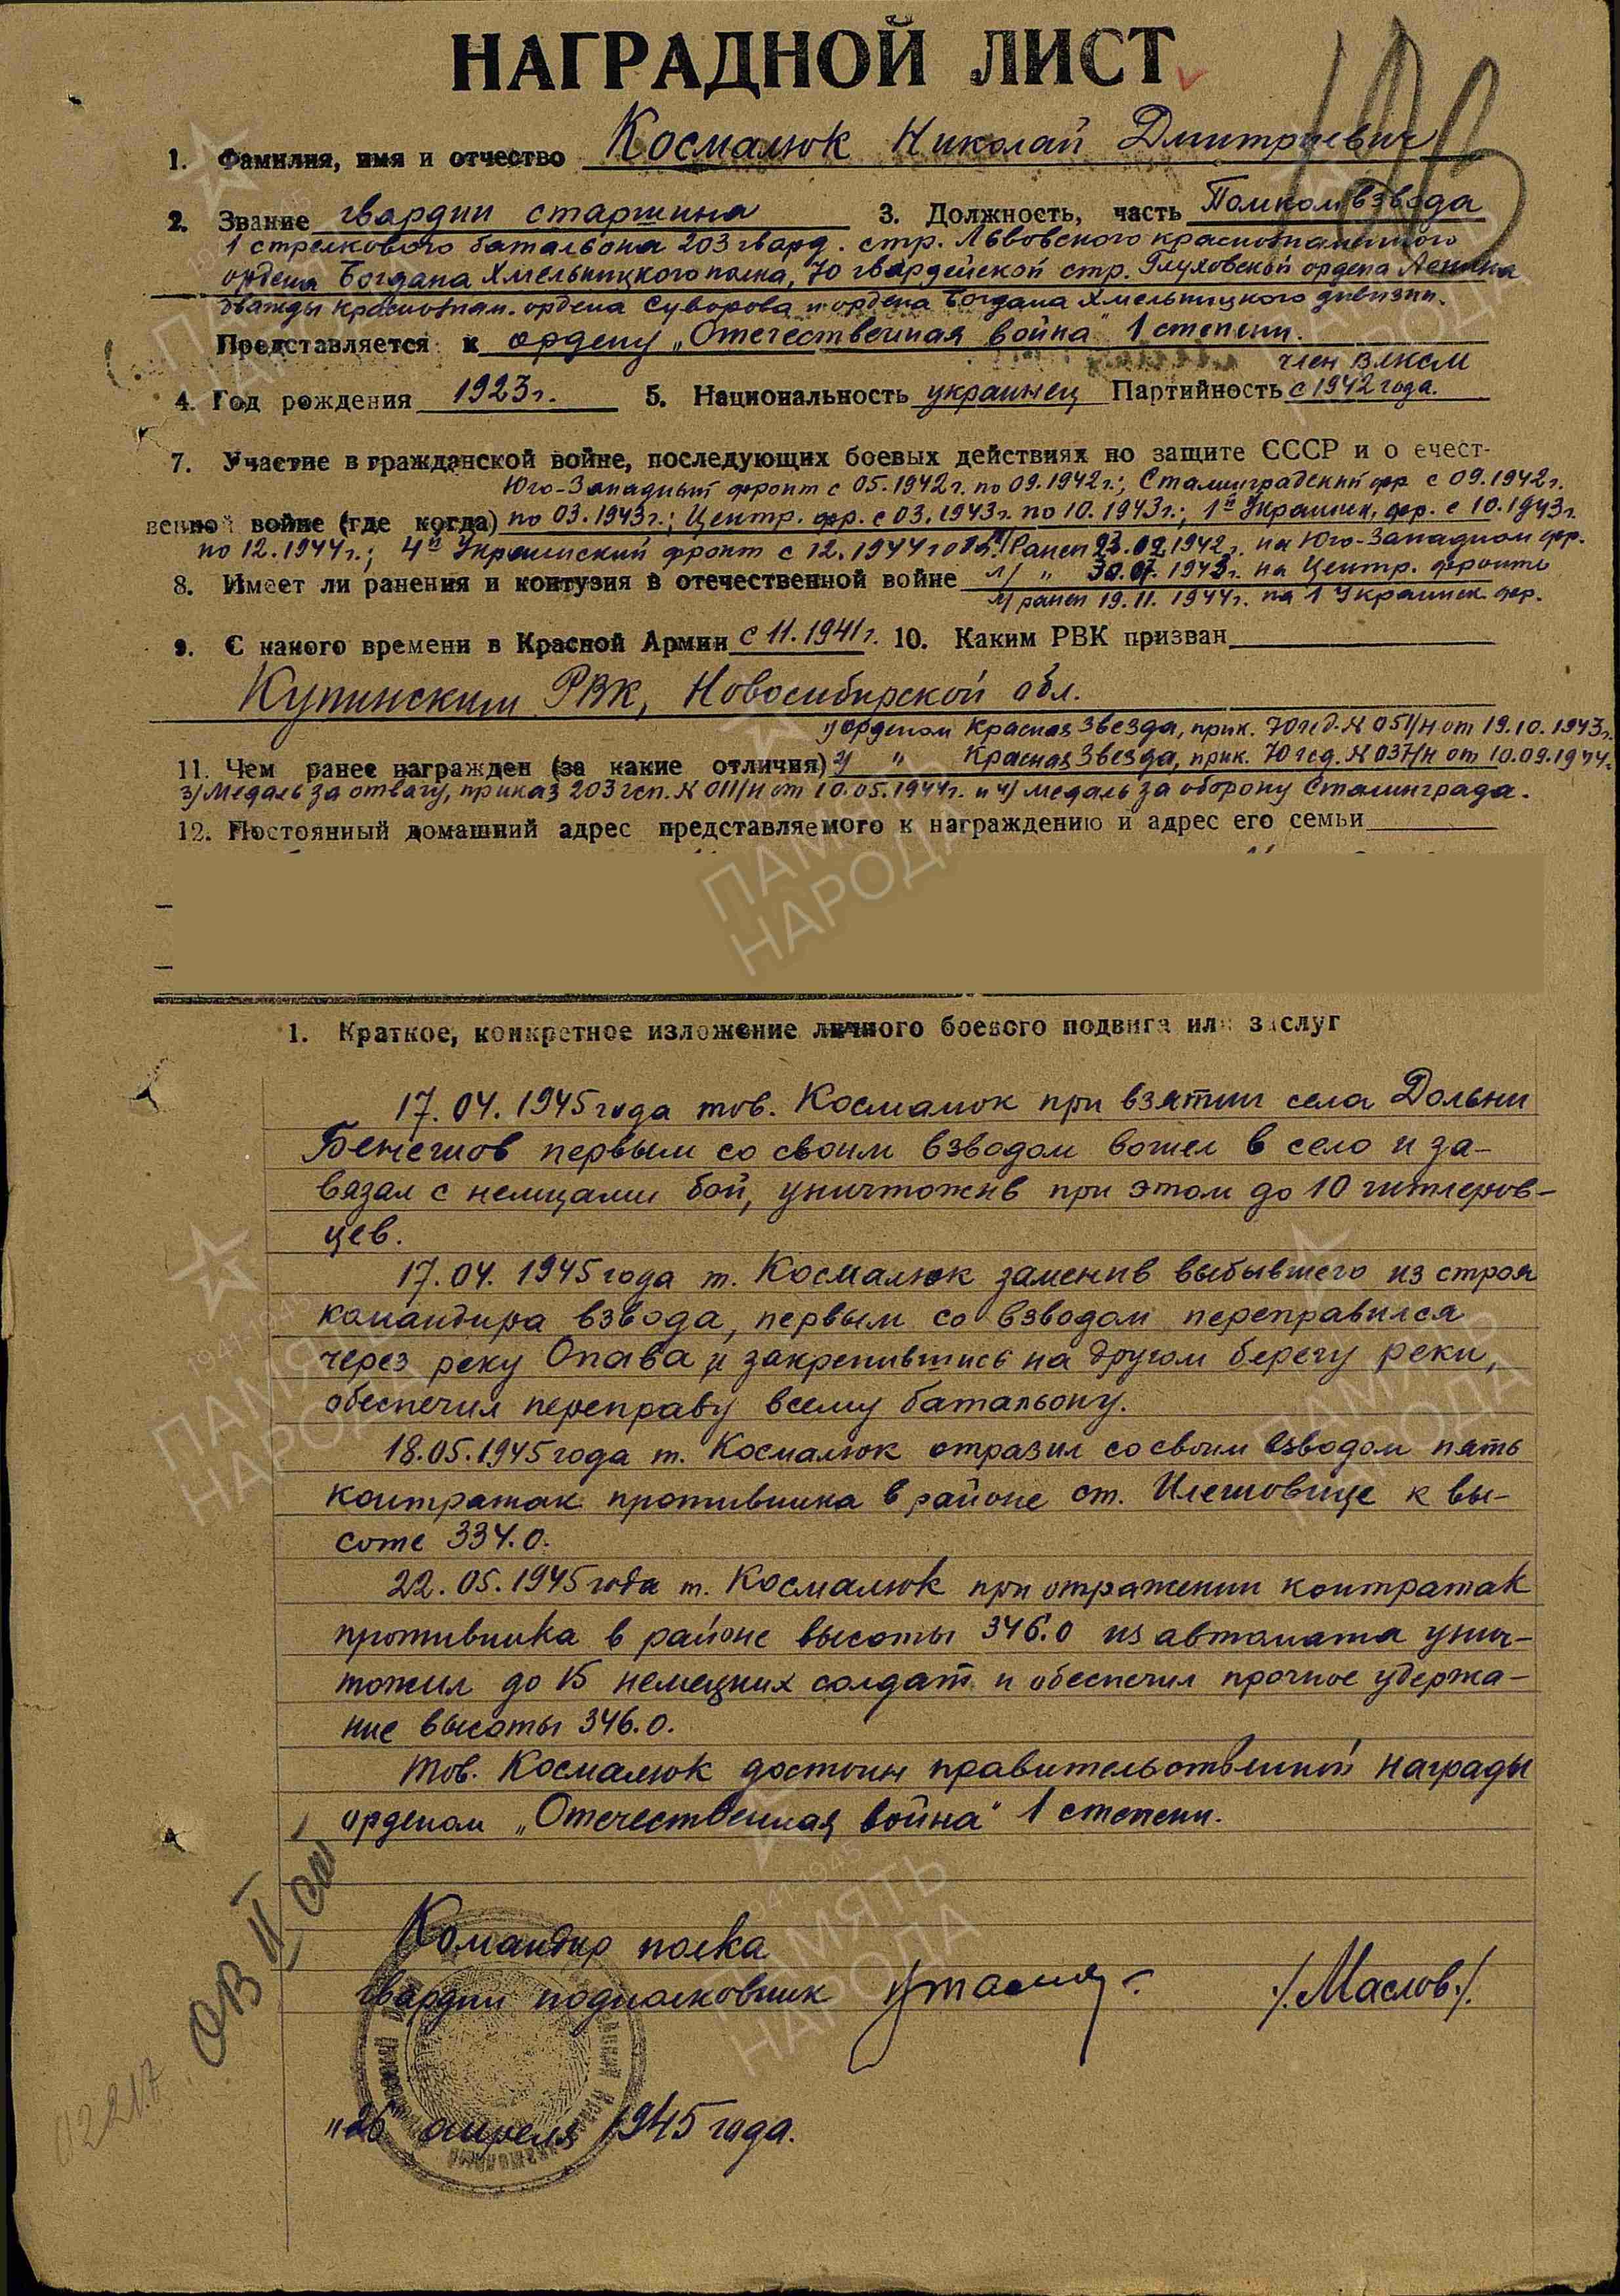 НАГРАДНОЙ ЛИСТ
1. Фамилия, имя и отчество Космалюк Николай Дмитриевич
2. Звание гвардии старшина 3. Должность, часть Помком взвода
1 стрелкового батальона 203 гвард. стр. Львовского краснознаменного
ордена Богдана Хмельницкого полка, 70 гвардейской стр. Глуховской ордена Ленина
дважды краснознам. ордена Суворова и ордена Богдана Хмельницкого дивизии.
Представляется к ордену „Отечественная война" 1 степени.
член ВЛКСМ
4. Год рождения 1923г. 5. Национальность украинец Партийность с 1942 года.
7. Участие в гражданской войне, последующих боевых действиях по защите СССР и о ечест-
Юго-Западный фронт с 05.1942г. по 09.1942г.; Сталинградский фр с 09.1942г.
венной войне (где когда) по 03.1943г.; Центр. фр. с 03.1943г. по 10.1943г.; 1й Украинск. фр. с 10.1943г.
по 12.1944г.; 4й Украинский фронт с 12.1944 года. Ранен 23.09.1942г. на Юго-Западном фр.
8. Имеет ли ранения и контузия в отечественной войне л/ " 30.07.1943г. на Центр. фронте
л/ ранен 19.11.1944г. на 1 Украинск. фр.
9. С какого времени в Красной Армии с 11.1941г. 10. Каким РВК призван
Купинским РВК, Новосибирской обл.
1) Орденом Красная Звезда, прик. 70 гсд. N 051/н от 19.10.1943г.
11. Чем ранее награжден (за какие отличия) 2) " Красная Звезда, прик. 70 гсд. N 037/н от 10.09.1944г.
3) Медаль за отвагу, приказ 203 гсп. N 011/н от 10.05.1944г. и 4) медаль за оборону Сталинграда.
12. Постоянный домашний адрес представляемого к награждению и адрес его семьи
1. Краткое, конкретное изложение личного боевого подвига или заслуг
17.04.1945 года тов. Космалюк при взятии села Дольни
Бенешов первым со своим взводом вошел в село и за-
вязал с немцами бой, уничтожив при этом до 10 гитлеров-
цев.
17.04.1945 года т. Космалюк заменив выбывшего из строя
командира взвода, первым со взводом переправился
через реку Опава и закрепившись на другом берегу реки,
обеспечил переправу всему батальону.
18.05.1945 года т. Космалюк отразил со своим взводом пять
контратак противника в районе ст. Илешовице к вы-
соте 334.0.
22.05.1945 года т. Космалюк при отражении контратак
противника в районе высоты 346.0 из автомата унич-
тожил до 15 немецких солдат и обеспечил прочное удержа-
ние высоты 346.0.
Тов. Космалюк достоин правительственной награды
орденом „Отечественная война" 1 степени.
ОВ II ст
Командир полка
гвардии подполковник /Маслов./
"26 апреля 1945 года.
ПАМЯТЬ
НАРОДА
1941-1945